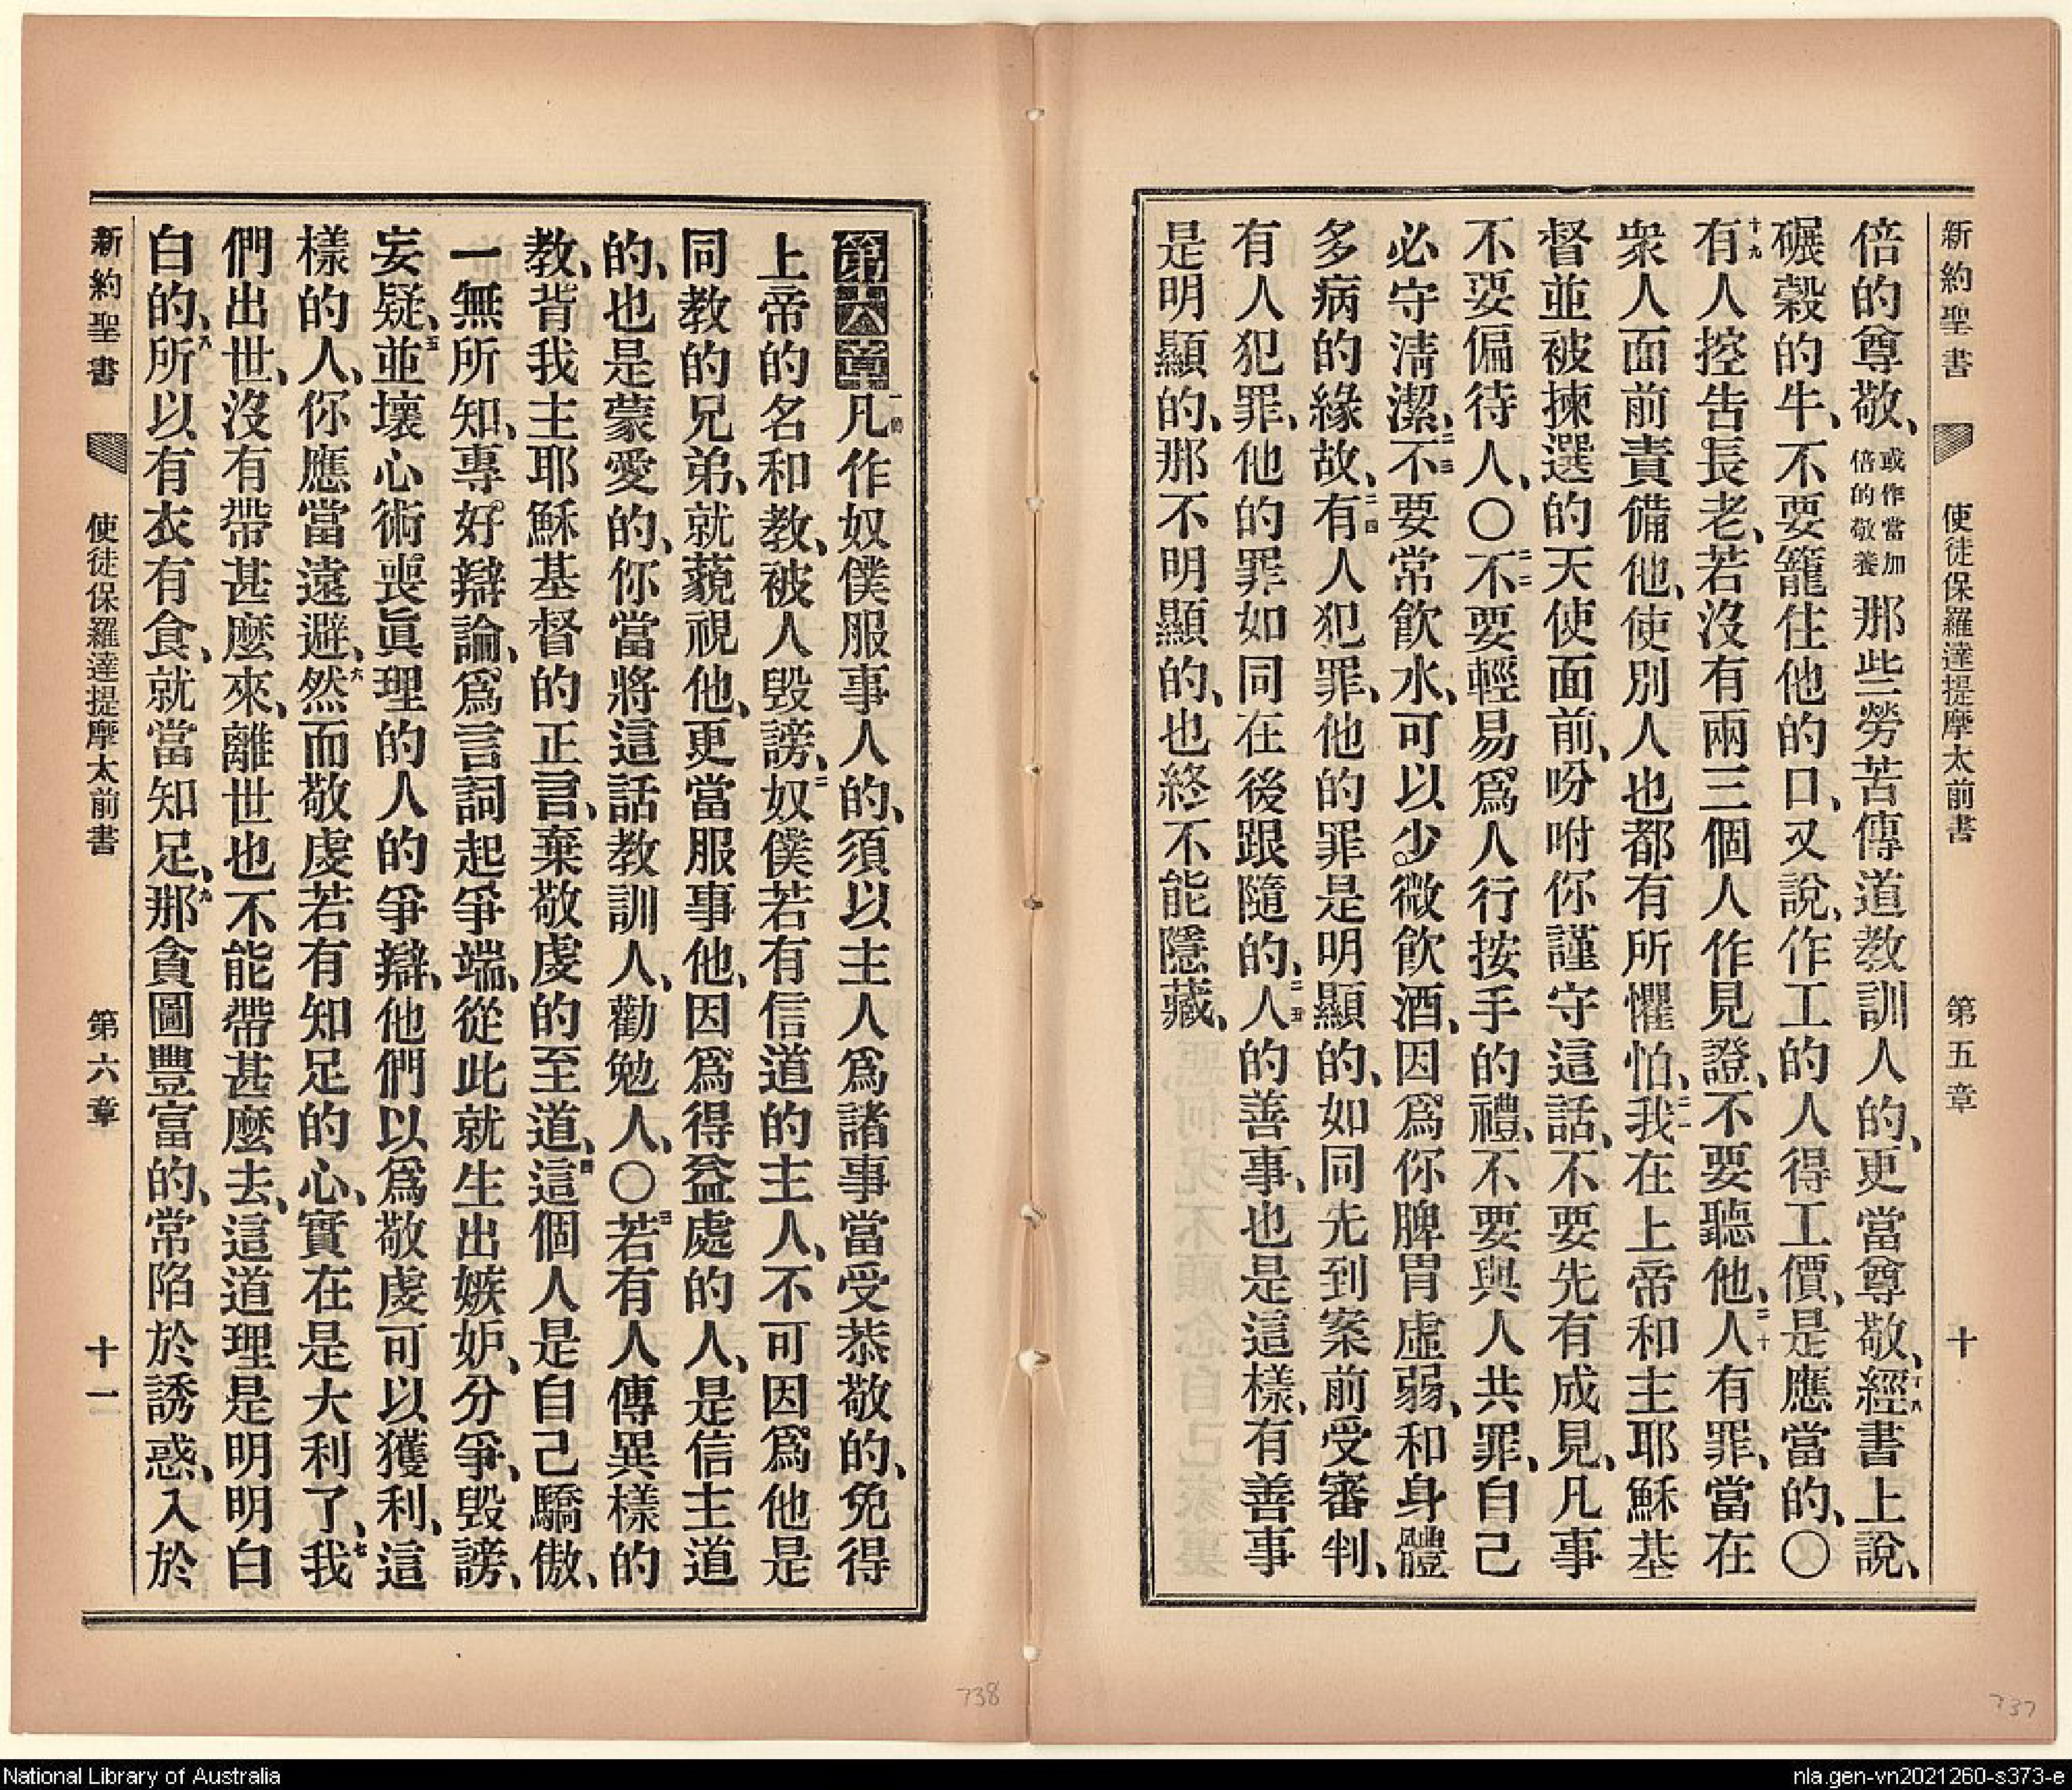 新約聖書 使徒保羅達提摩太前書 第五章 十
倍的尊敬、或作當加倍的敬養那些勞苦傳道教訓人的、更當尊敬、十八經書上說、
碾穀的牛、不要籠住他的口、又說、作工的人得工價、是應當的、〇
十九有人控告長老、若沒有兩三個人作見證、不要聽他、二十人有罪、當在
衆人面前責備他、使別人也都有所懼怕、二一我在上帝和主耶穌基
督並被揀選的天使面前、吩咐你謹守這話、不要先有成見、凡事
不要偏待人、〇二二不要輕易爲人行按手的禮、不要與人共罪、自己
必守淸潔、二三不要常飮水、可以少微飮酒、因爲你脾胃虛弱、和身體
多病的緣故、二四有人犯罪、他的罪是明顯的、如同先到案前受審判、
有人犯罪、他的罪如同在後跟隨的、二五人的善事、也是這樣、有善事
是明顯的、那不明顯的、也終不能隱藏、
第六章一節凡作奴僕服事人的、須以主人爲諸事當受恭敬的、免得
上帝的名和教、被人毀謗、二奴僕若有信道的主人、不可因爲他是
同教的兄弟、就藐視他、更當服事他、因爲得益處的人、是信主道
的、也是蒙愛的、你當將這話教訓人、勸勉人、〇三若有人傳異樣的
教、背我主耶穌基督的正言、棄敬虔的至道、四這個人是自己驕傲、
一無所知、專好辯論、爲言詞起爭端、從此就生出嫉妒、分爭、毀謗、
妄疑、五並壞心術喪眞理的人的爭辯、他們以爲敬虔可以獲利、這
樣的人、你應當遠避、六然而敬虔若有知足的心、實在是大利了、七我
們出世、沒有帶甚麼來、離世也不能帶甚麼去、這道理是明明白
白的、八所以有衣有食、就當知足、九那貪圖豐富的、常陷於誘惑、入於
新約聖書 使徒保羅達提摩太前書 第六章 十一
738
737
National Library of Australia
nla.gen-vn2021260-s373-e